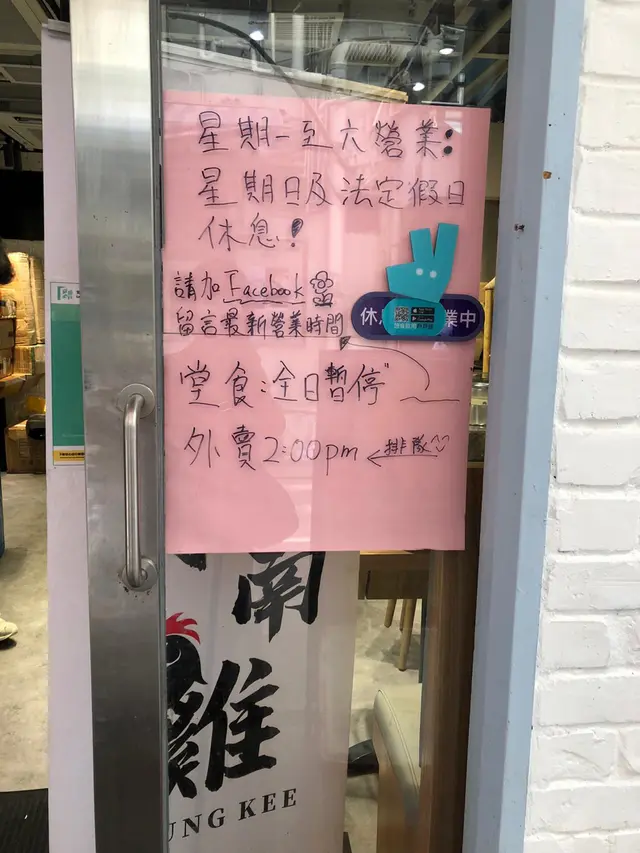 星期一至六營業:
星期日及法定假日
休息!
請加Facebook
留言最新營業時間
休
業中
堂食:全日暫停"
外賣2:00pm ←排隊
南
雞
UNG KEE